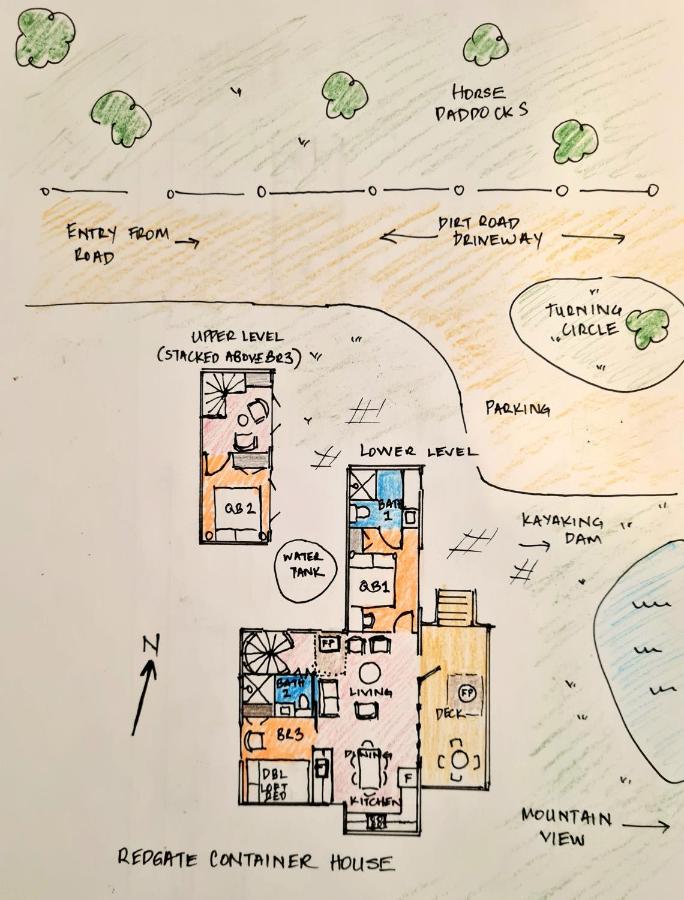 HORSE
PADDOCKS
ENTRY FROM
ROAD
DIRT ROAD
DRIVEWAY
TURNING
CIRCLE
UPPER LEVEL
(STACKED ABOVE BR3)
PARKING
LOWER LEVEL
QB2
BATH
1
KAYAKING
DAM
WATER
TANK
QB1
N
FP
BATH
2
LIVING
FP
DECK
BR3
DINING
DBL
LOFT
BED
F
KITCHEN
MOUNTAIN
VIEW
REDGATE CONTAINER HOUSE